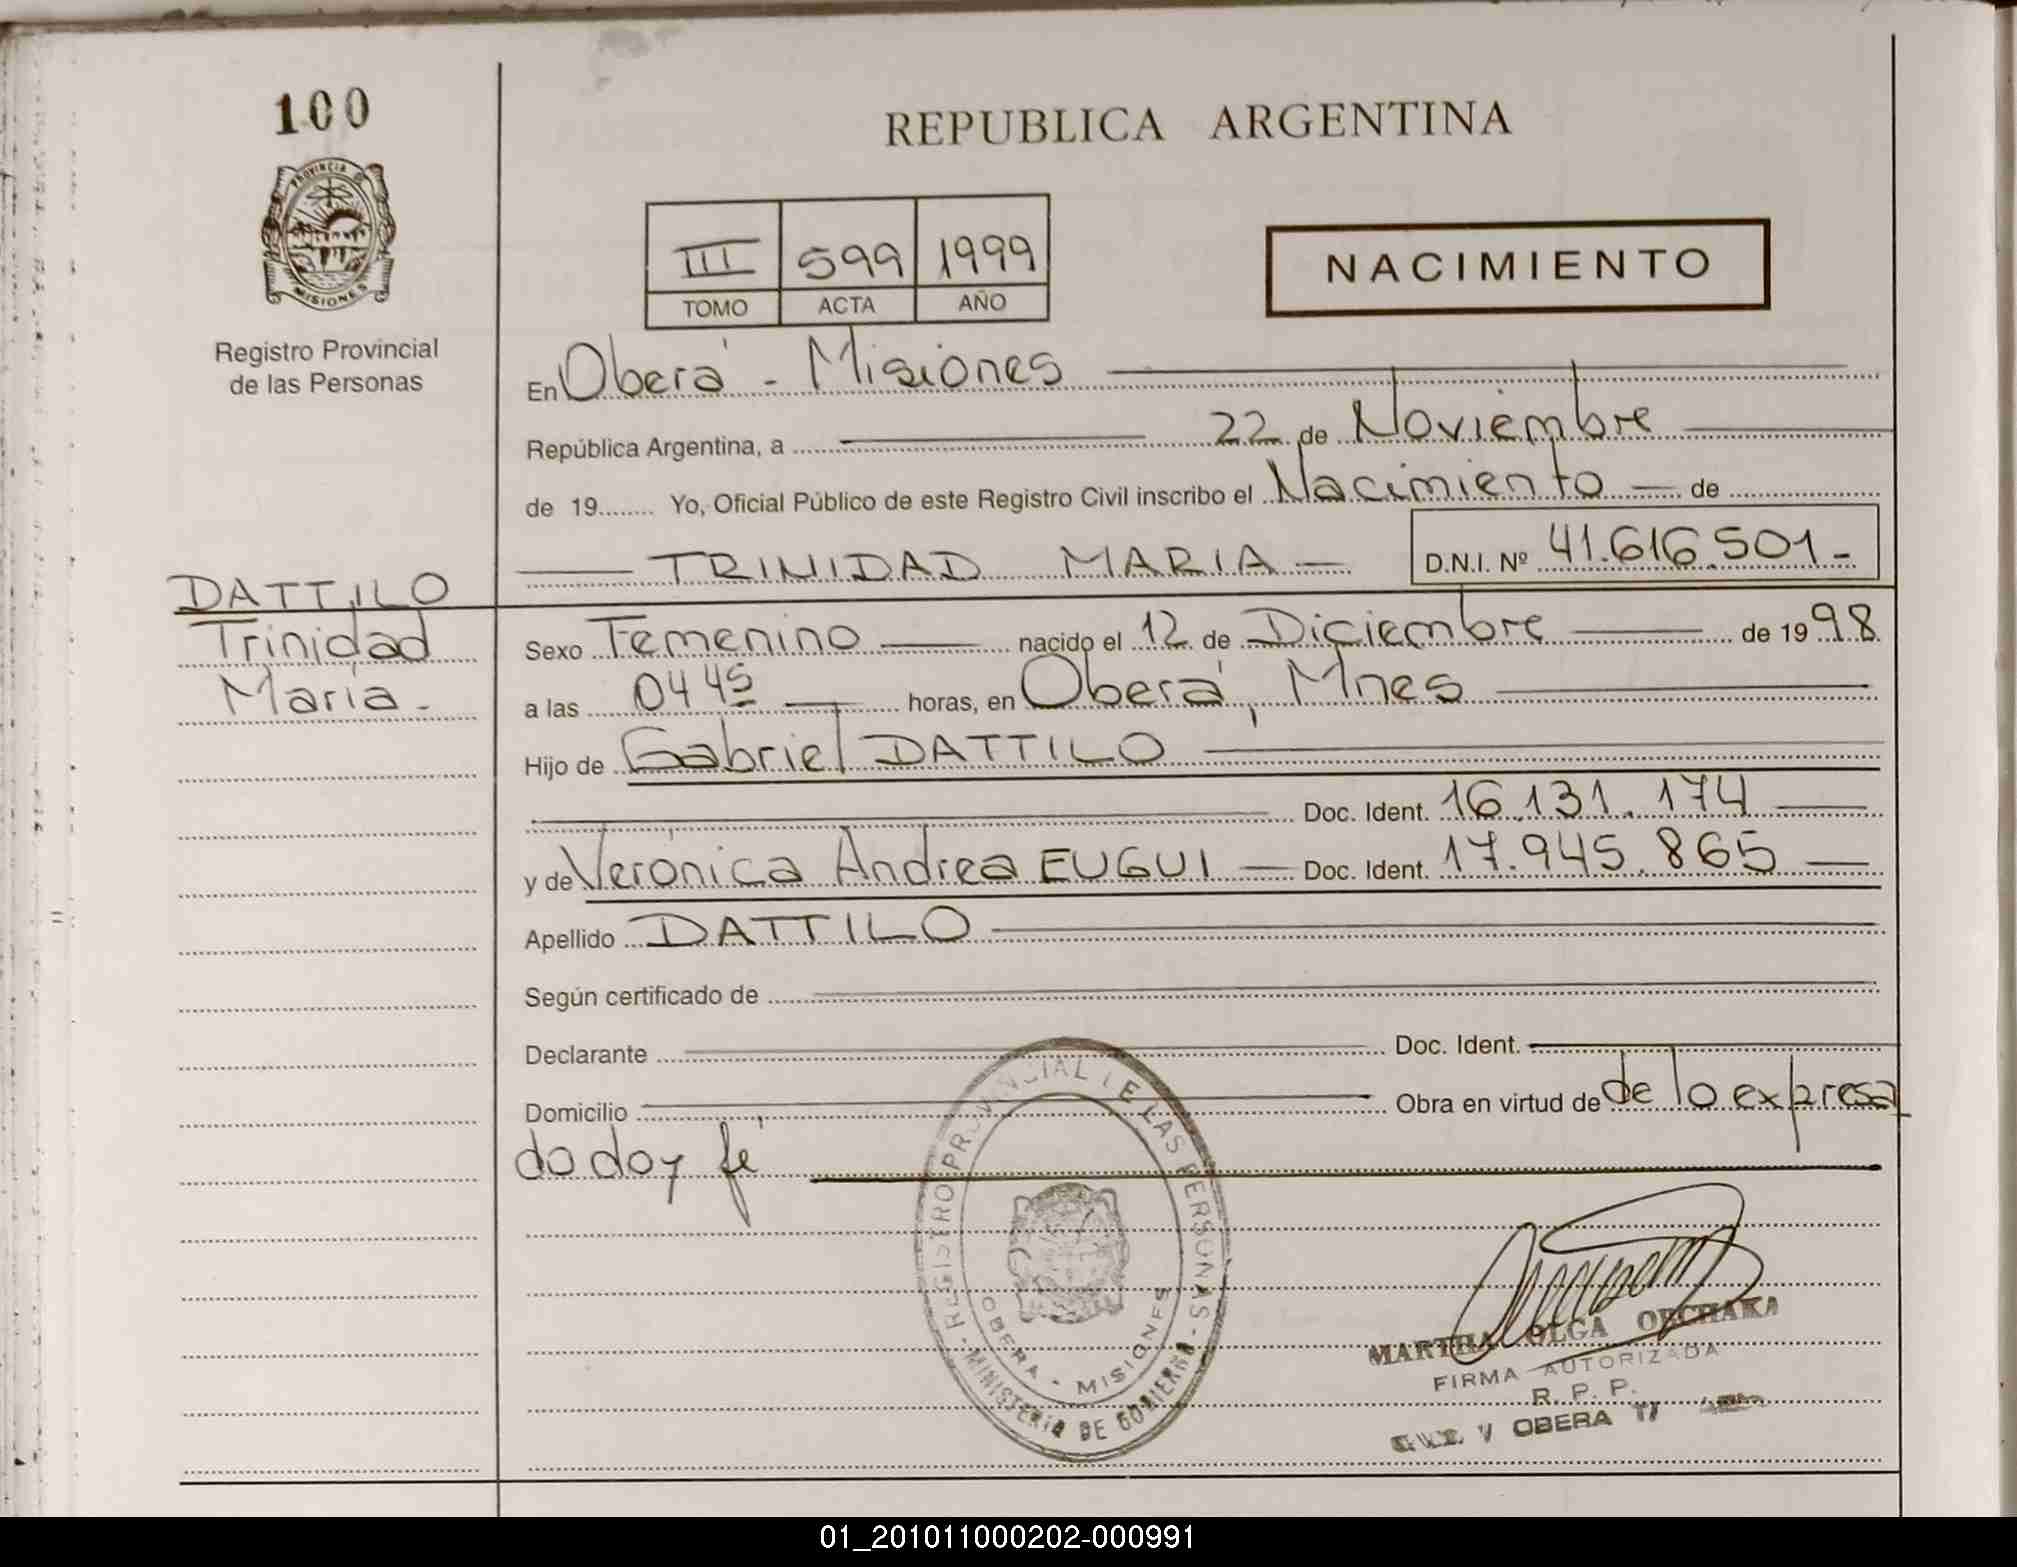 100
PROVINCIA DE
MISIONES
Registro Provincial
de las Personas
REPUBLICA ARGENTINA
III 599 1999
TOMO ACTA AÑO
NACIMIENTO
En Oberá - Misiones
República Argentina, a 22 de Noviembre
de 19........ Yo, Oficial Público de este Registro Civil inscribo el Nacimiento de
TRINIDAD MARIA D.N.I. Nº 41.616.501.-
DATTILO
Trinidad
María.-
Sexo Femenino nacido el 12 de Diciembre de 1998
a las 0445 horas, en Oberá, Mnes
Hijo de Gabriel DATTILO
Doc. Ident. 16.131.174
y de Verónica Andrea EUGUI Doc. Ident. 17.945.865
Apellido DATTILO
Según certificado de
Declarante Doc. Ident.
Domicilio Obra en virtud de de lo expresa
do doy fé
REGISTRO PROVINCIAL DE LAS PERSONAS
OBERA - MISIONES
MINISTERIO DE GOBIERNO
MARTHA OLGA ORCHAKA
FIRMA AUTORIZADA
R. P. P.
OBERA
01_201011000202-000991